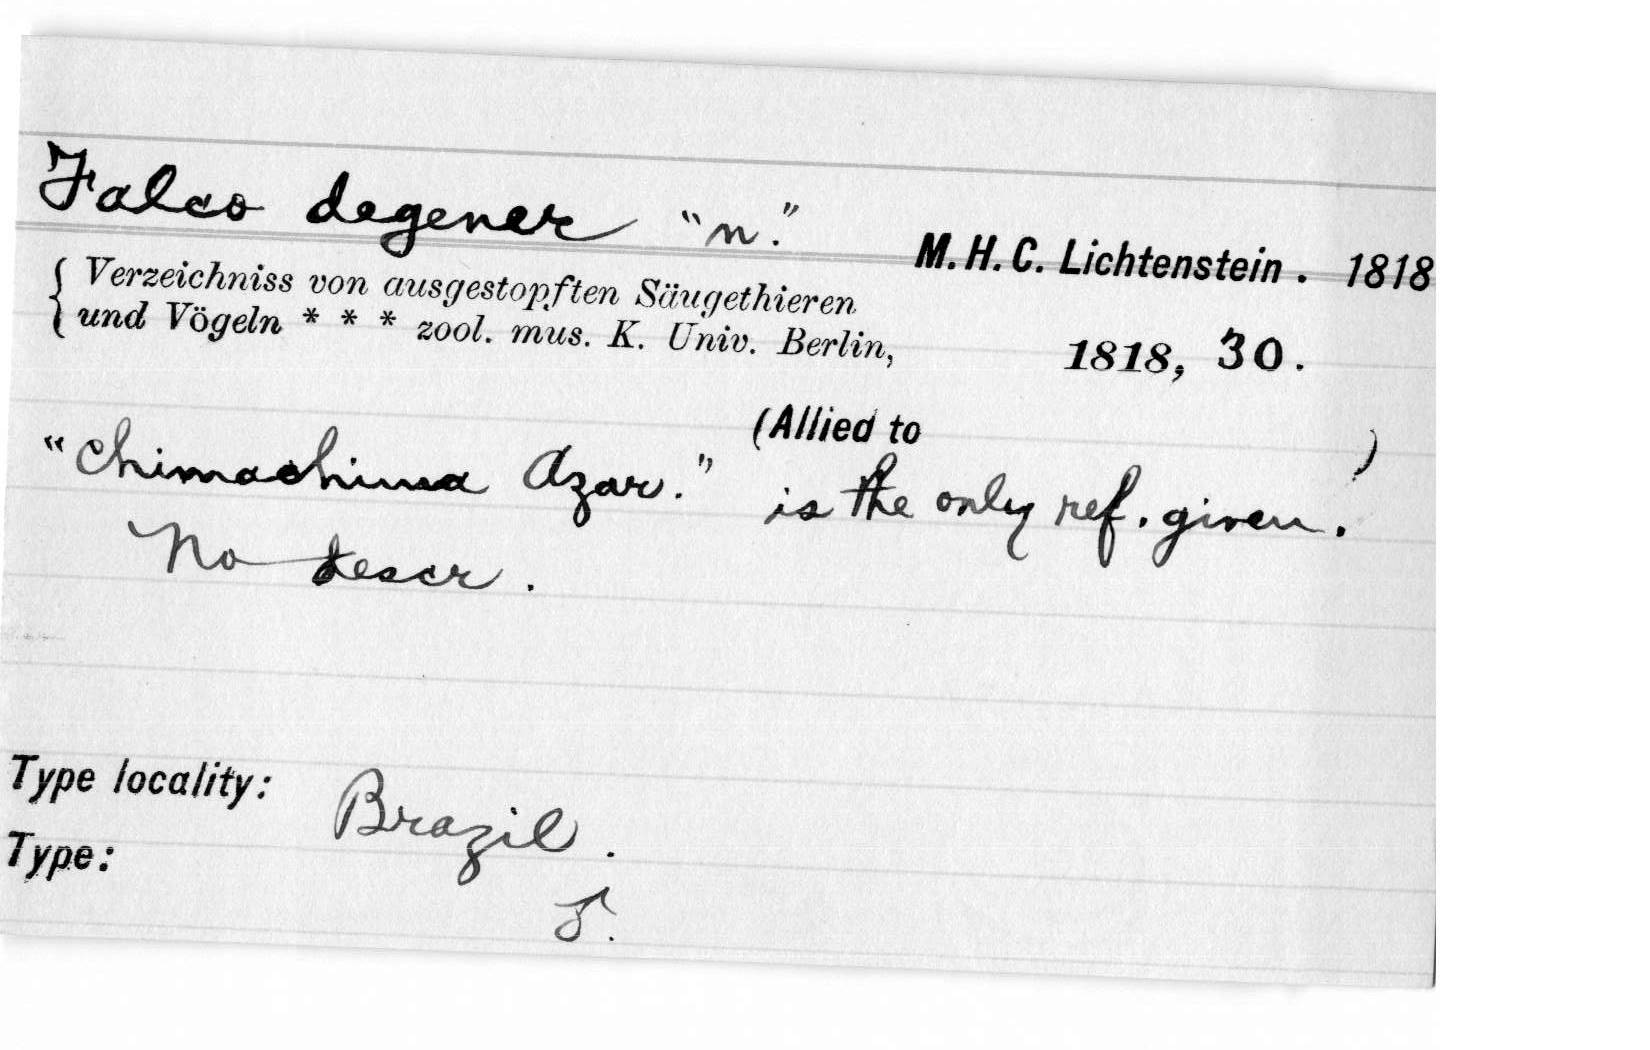 Falco degener "n."
M. H. C. Lichtenstein. 1818
{ Verzeichniss von ausgestopften Säugethieren
und Vögeln * * * zool. mus. K. Univ. Berlin, 1818, 30.
(Allied to )
"Chimachima Azar." is the only ref. given.
No descr.
Type locality: Brazil.
Type: ♂.